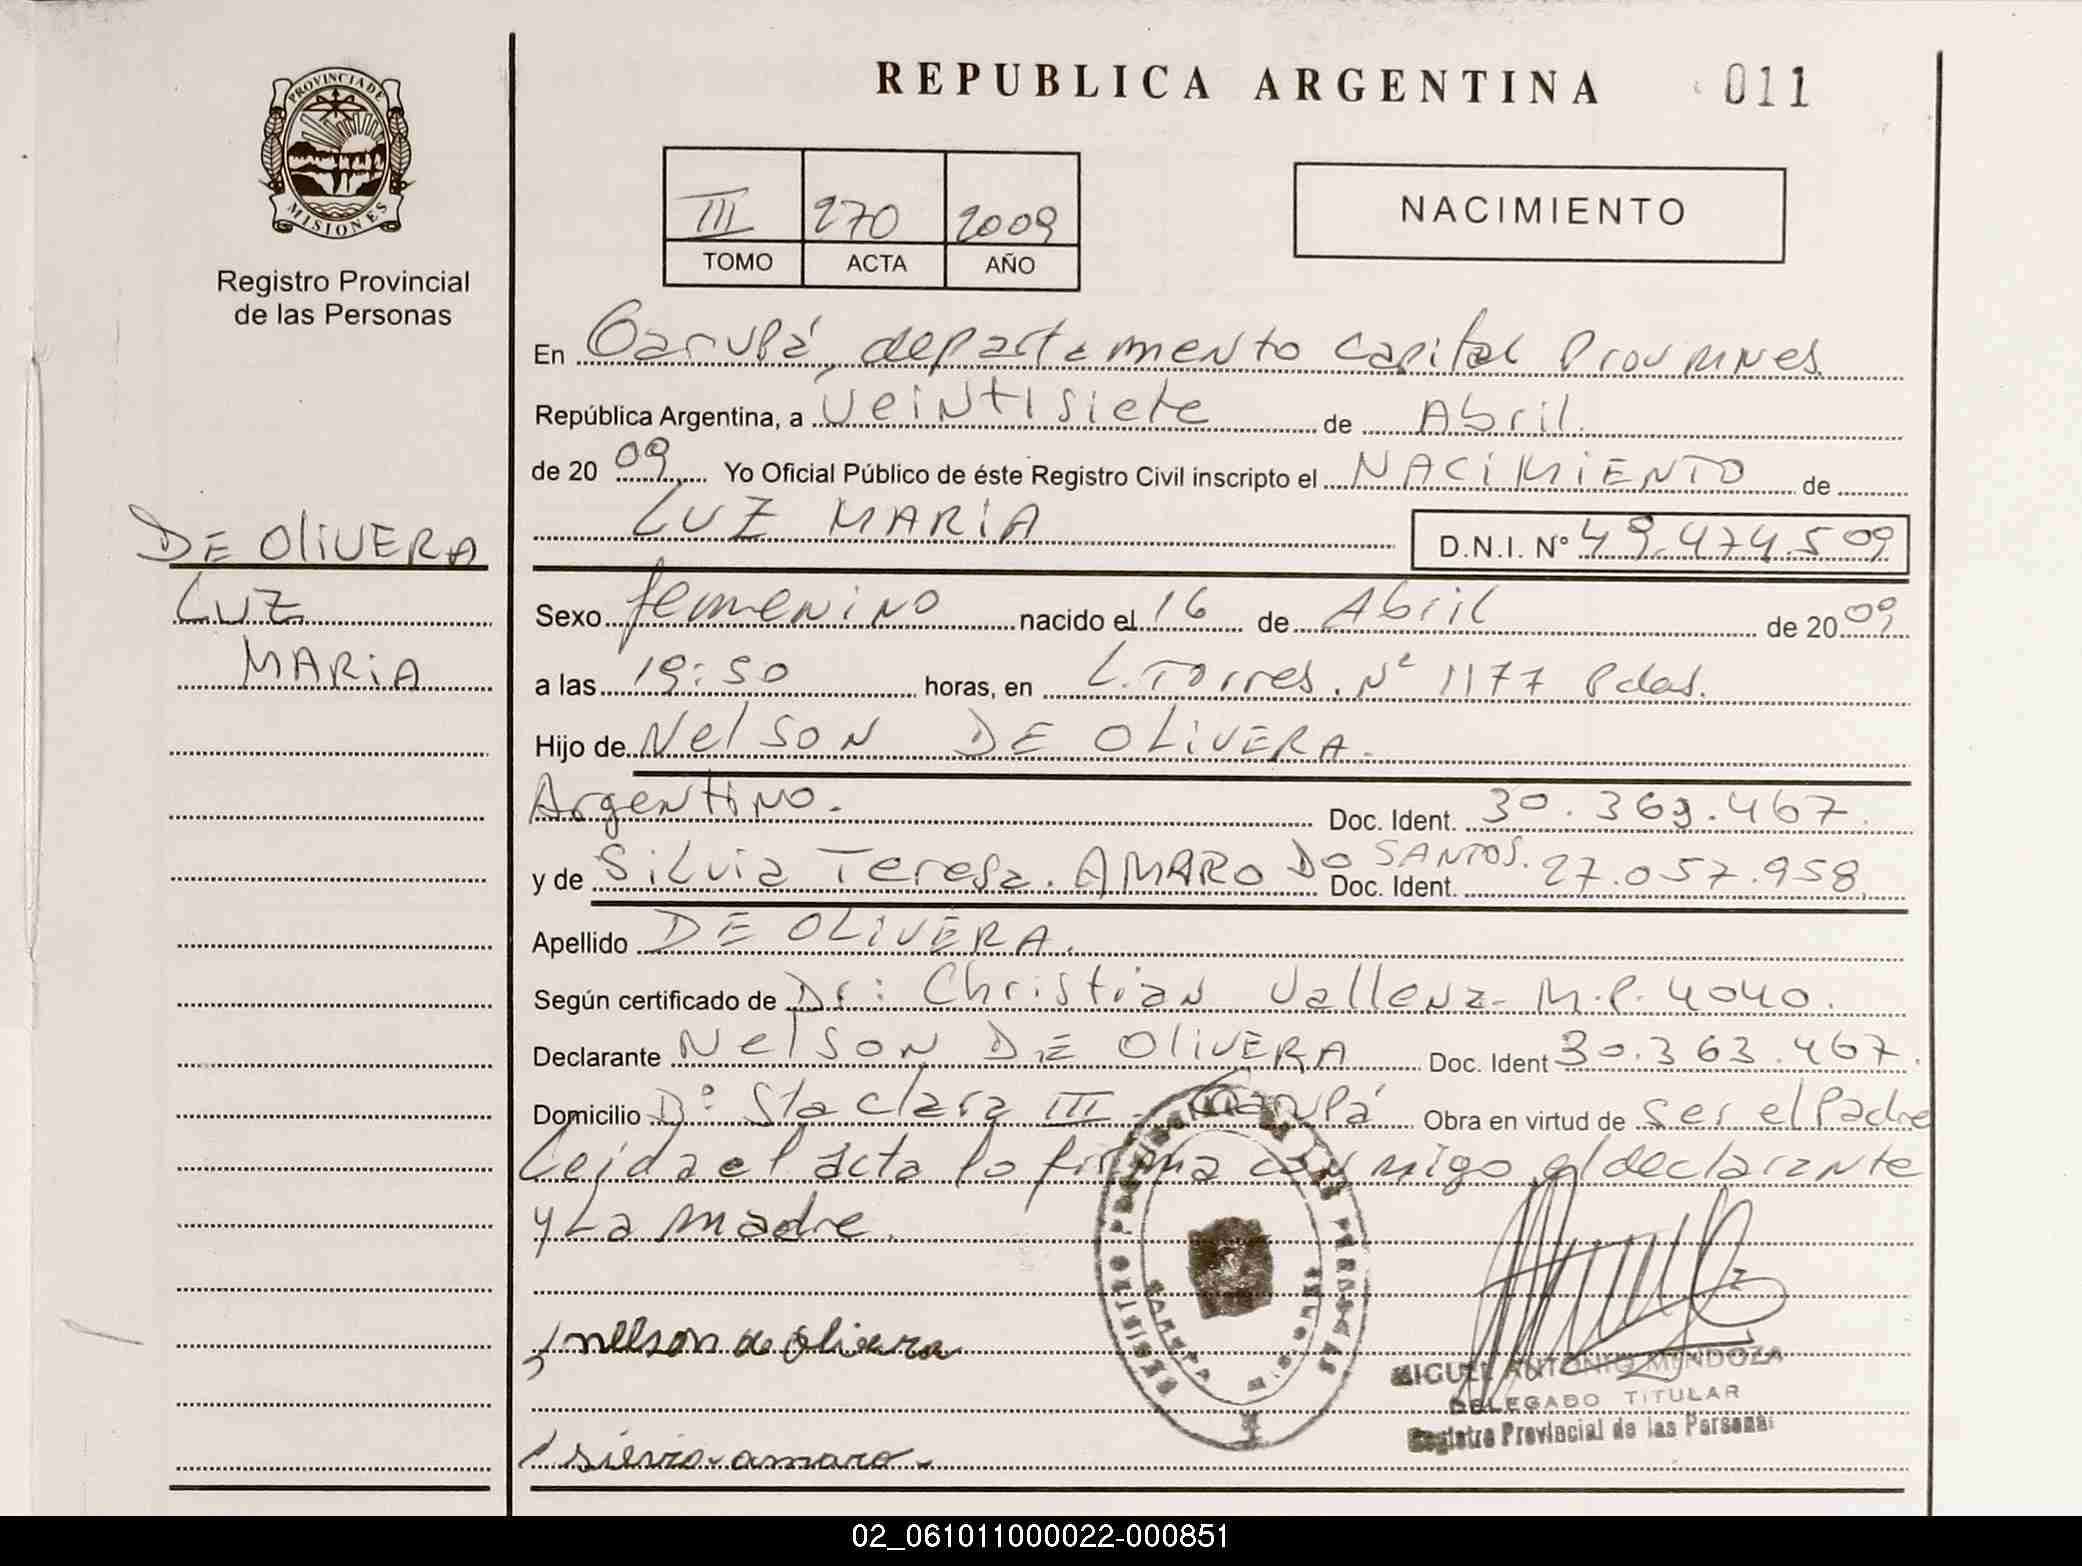 REPUBLICA ARGENTINA 011
PROVINCIA DE
MISIONES
Registro Provincial
de las Personas
III 270 2009
TOMO ACTA AÑO
NACIMIENTO
En Garupá, departamento Capital Prov. Mnes.
República Argentina, a Veintisiete de Abril.
de 20 09 Yo Oficial Público de éste Registro Civil inscripto el NACIMIENTO de
LUZ MARIA D.N.I. Nº 49.474.509
DE OLIVERA
LUZ
MARIA
Sexo femenino nacido el 16 de Abril de 20 09
a las 19:50 horas, en L. Torres. Nº 1177 Pdas.
Hijo de Nelson DE OLIVERA.
Argentino. Doc. Ident. 30.363.467.
y de Silvia Teresa. AMARO DO SANTOS. Doc. Ident. 27.057.958.
Apellido DE OLIVERA.
Según certificado de Dr: Christian Vallena- M.P. 4040.
Declarante Nelson DE OLIVERA Doc. Ident 30.363.467.
Domicilio Dº: Sta Clara III - Garupá Obra en virtud de ser el Padre
Leida el acta lo firma conmigo el declarante
y La madre.
nelson de olivera
silvia amaro.
REGISTRO PROVINCIAL DE LAS PERSONAS
GARUPA MISIONES
MIGUEL ANTONIO MENDOZA
DELEGADO TITULAR
Registro Provincial de las Personas
02_061011000022-000851